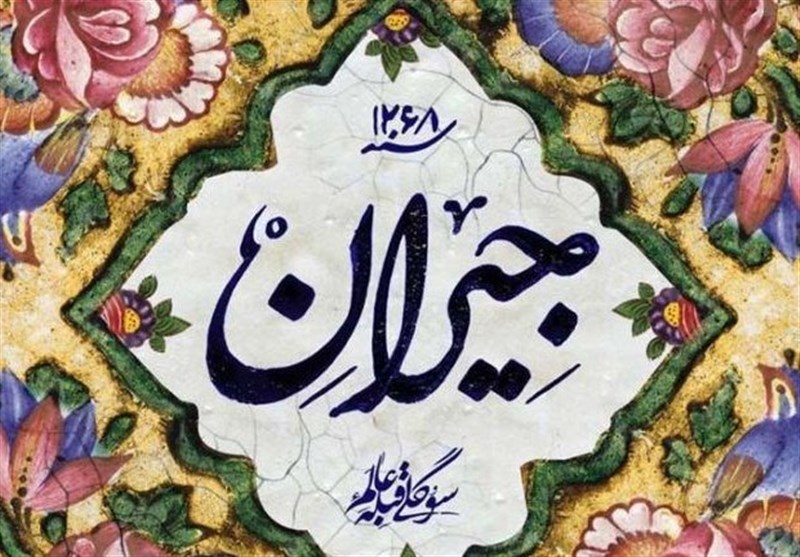 سنه ۱۲۶۸
جیران
سوگلی قبله عالم